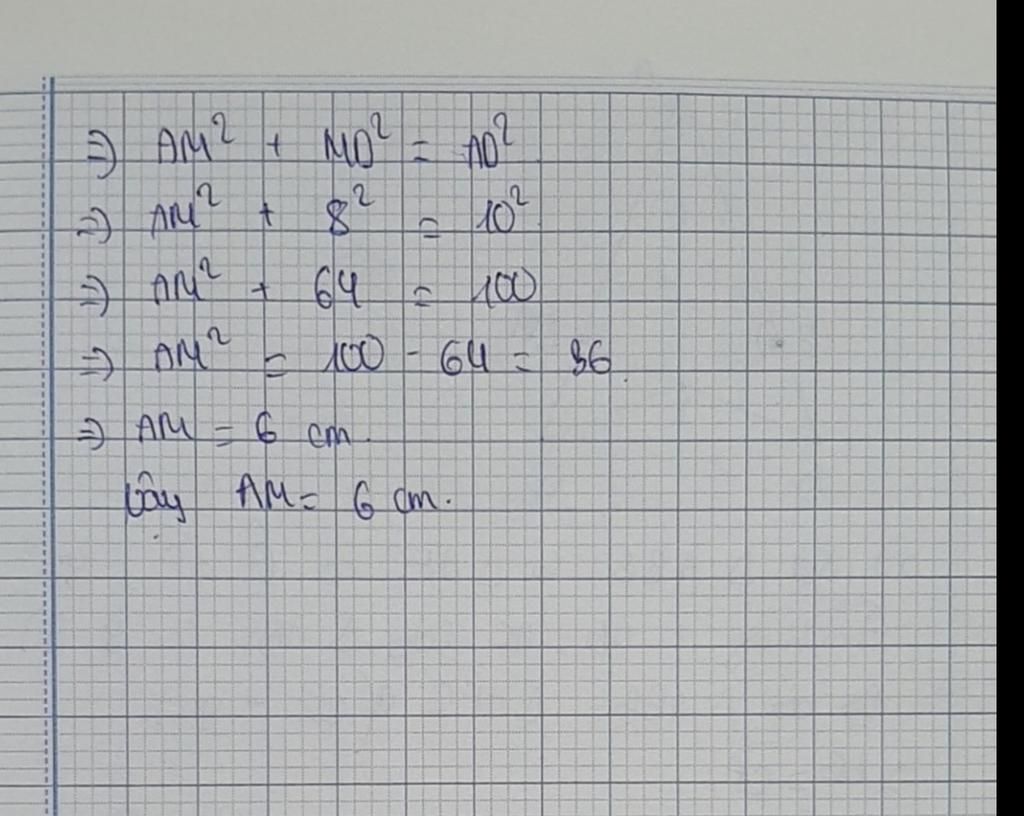 ⇒ AM² + MD² = AD²
⇒ AM² + 8² = 10²
⇒ AM² + 64 = 100
⇒ AM² = 100 - 64 = 36.
⇒ AM = 6 cm.
Vậy AM = 6 cm.